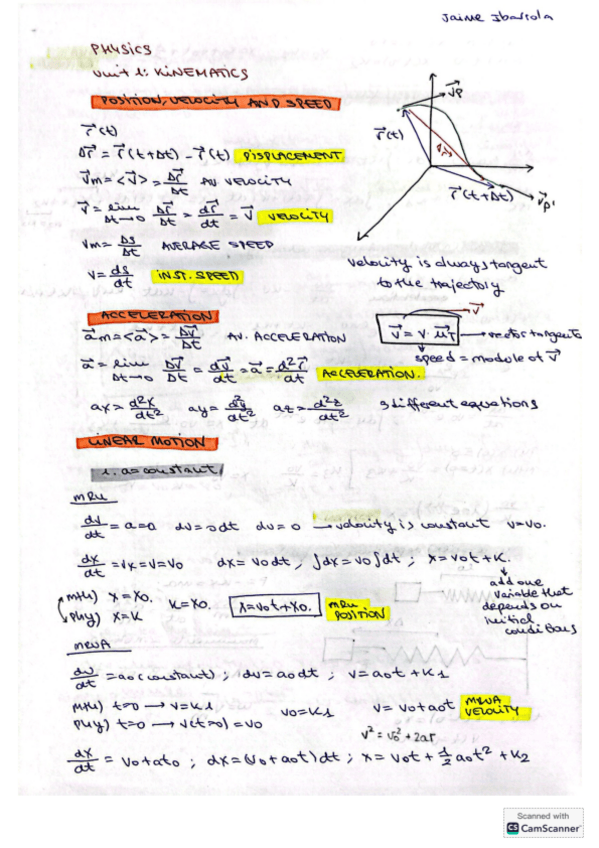 Jaime Ibarrola
PHYSICS
Unit 1: KINEMATICS
POSITION, VELOCITY AND SPEED
r⃗(t)
Δr⃗ = r⃗(t+Δt) - r⃗(t) DISPLACEMENT
v⃗m = <v⃗> = Δr⃗/Δt AV VELOCITY
v⃗ = lim Δt→0 Δr⃗/Δt = dr⃗/dt = v⃗ VELOCITY
vm = Δs/Δt AVERAGE SPEED
v = ds/dt INST. SPEED
v⃗p
r⃗(t)
Δr⃗
r⃗(t+Δt)
v⃗p'
velocity is always tangent
to the trajectory
ACCELERATION
a⃗m = <a⃗> = Δv⃗/Δt AV. ACCELERATION
a⃗ = lim Δt→0 Δv⃗/Δt = dv⃗/dt = a⃗ = d²r⃗/dt ACCELERATION.
v⃗
v⃗ = v · u⃗T → vector tangents
speed = module of v⃗
ax = d²x/dt² ay = d²y/dt² az = d²z/dt² 3 different equations
LINEAR MOTION
1. a = constant
MRU
dv/dt = a = 0 dv = 0dt dv = 0 → velocity is constant v = v0.
dx/dt = vx = v = v0 dx = v0dt ; ∫dx = v0∫dt ; x = v0t + K.
add one
variable that
depends on
initial
conditions
MH) x = x0.
PHY) x = K
K = x0.
x = v0t + x0.
MRU
POSITION
MRUA
dv/dt = a0 (constant) ; dv = a0dt ; v = a0t + K1
MH) t=0 → v = K1
PHY) t=0 → v(t=0) = v0
v0 = K1 v = v0 + a0t MRUA
VELOCITY
v² = v0² + 2ar
dx/dt = v0 + at0 ; dx = (v0 + a0t)dt ; x = v0t + 1/2 a0t² + K2
Scanned with
CS CamScanner